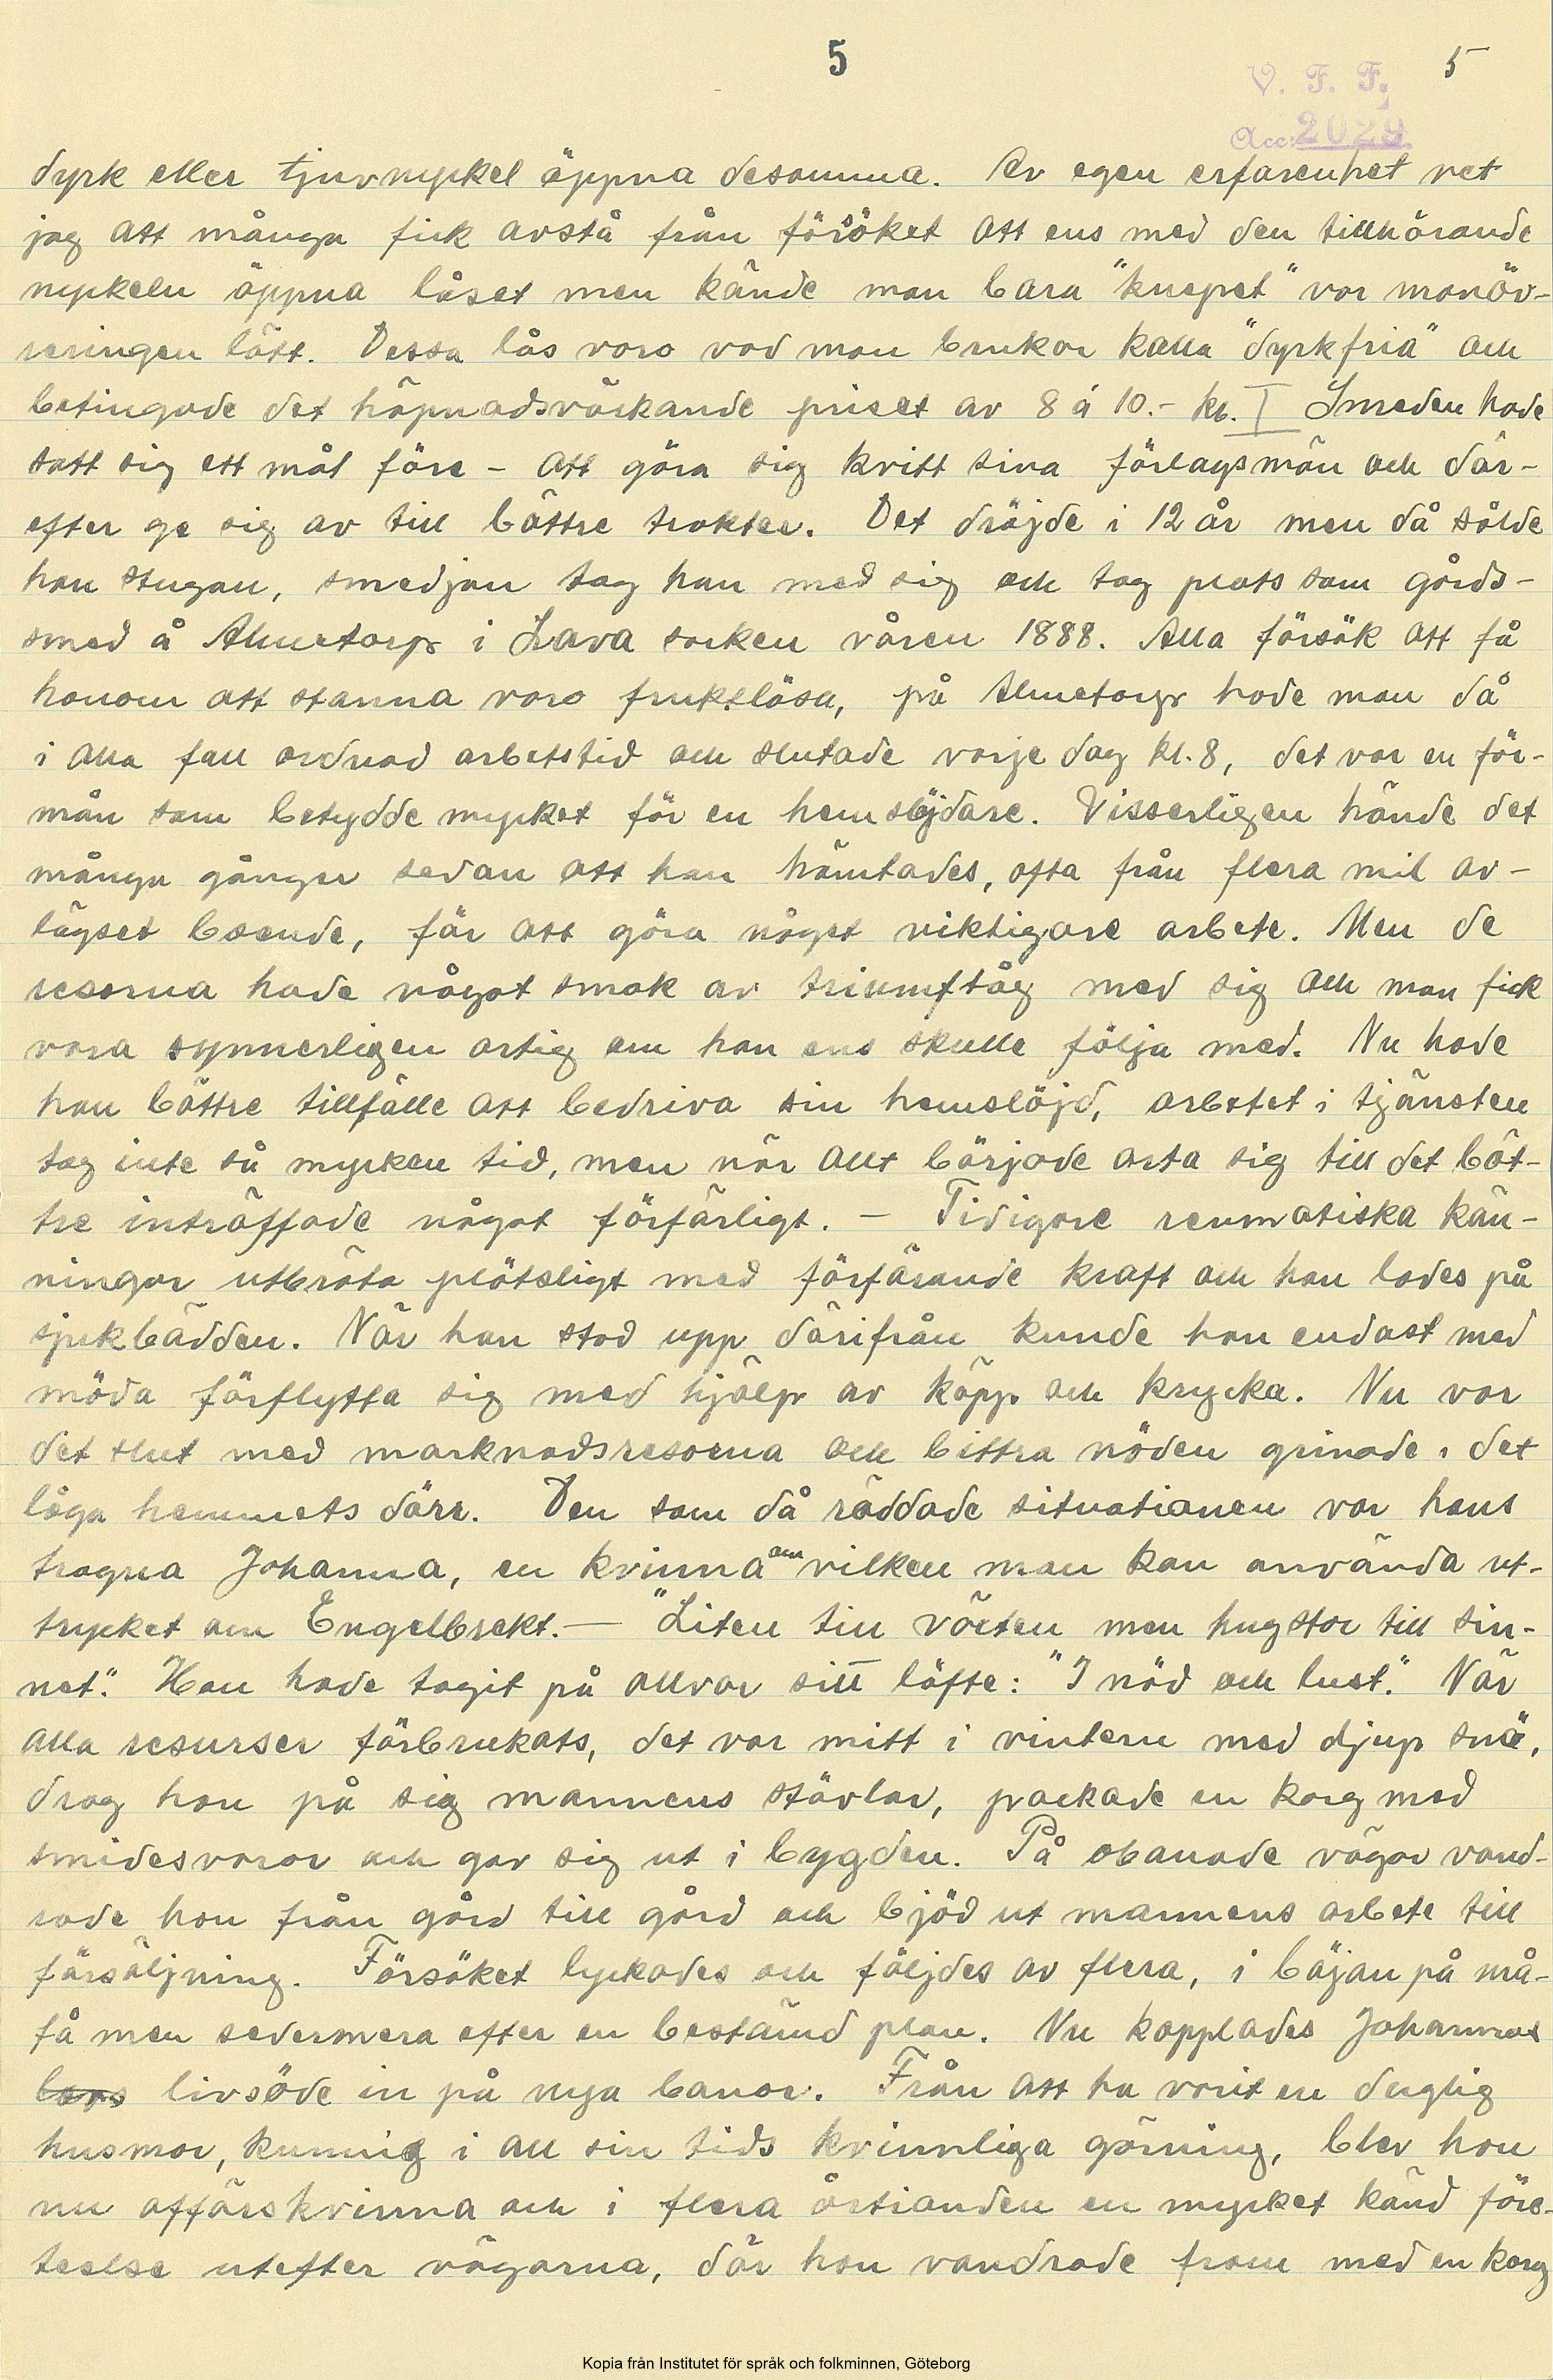 5
5
V. F. F.
Acc: 2029
dyrk eller tjuvnyckel öppna desamma. Av egen erfarenhet vet
jag att många fick avstå från försöket att ens med den tillhörande
nyckeln öppna låset men kände man bara "knepet" var manöv-
reringen lätt. Dessa lås voro vad man brukar kalla "dyrkfria" och
betingade det häpnadsväckande priset av 8 á 10.- kr. I Smeden hade
satt sig ett mål före - att göra sig kvitt sina förlagsmän och där-
efter ge sig av till bättre trakter. Det dröjde i 12 år men då sålde
han stugan, smedjan tog han med sig och tog plats som gårds-
smed å Almetorp i Lava socken våren 1888. Alla försök att få
honom att stanna voro fruktlösa, på Almetorp hade man då
i alla fall ordnad arbetstid och slutade varje dag kl. 8, det var en för-
mån som betydde mycket för en hemslöjdare. Visserligen hände det
många gånger sedan att han hämtades, ofta från flera mil av-
lägset boende, för att göra något viktigare arbete. Men de
resorna hade något smak av triumftåg med sig och man fick
vara synnerligen artig om han ens skulle följa med. Nu hade
han bättre tillfälle att bedriva sin hemslöjd, arbetet i tjänsten
tog inte så mycken tid, men när allt började arta sig till det bät-
tre inträffade något förfärligt. - Tidigare reumatiska kän-
ningar utbröto plötsligt med förfärande kraft och han lades på
sjukbädden. När han stod upp därifrån kunde han endast med
möda förflytta sig med hjälp av käpp och krycka. Nu var
det slut med marknadsresorna och bittra nöden grinade i det
låga hemmets dörr. Den som då räddade situationen var hans
trogna Johanna, en kvinna om vilken man kan använda ut-
trycket om Engelbrekt. - "Liten till växten men hugstor till sin-
net". Hon hade tagit på allvar sitt löfte: "I nöd och lust". När
alla resurser förbrukats, det var mitt i vintern med djup snö,
drog hon på sig mannens stövlar, packade en korg med
smidesvaror och gav sig ut i bygden. På obanade vägar vand-
rade hon från gård till gård och bjöd ut mannens arbete till
försäljning. Försöket lyckades och följdes av flera, i böjan på må-
få men sedermera efter en bestämd plan. Nu kopplades Johannas
livsöde in på nya banor. Från att ha varit en duglig
husmor, kunnig i all sin tids kvinnliga görning, blev hon
nu affärskvinna och i flera årtionden en mycket känd före-
teelse utefter vägarna, där hon vandrade fram med en korg
Kopia från Institutet för språk och folkminnen, Göteborg